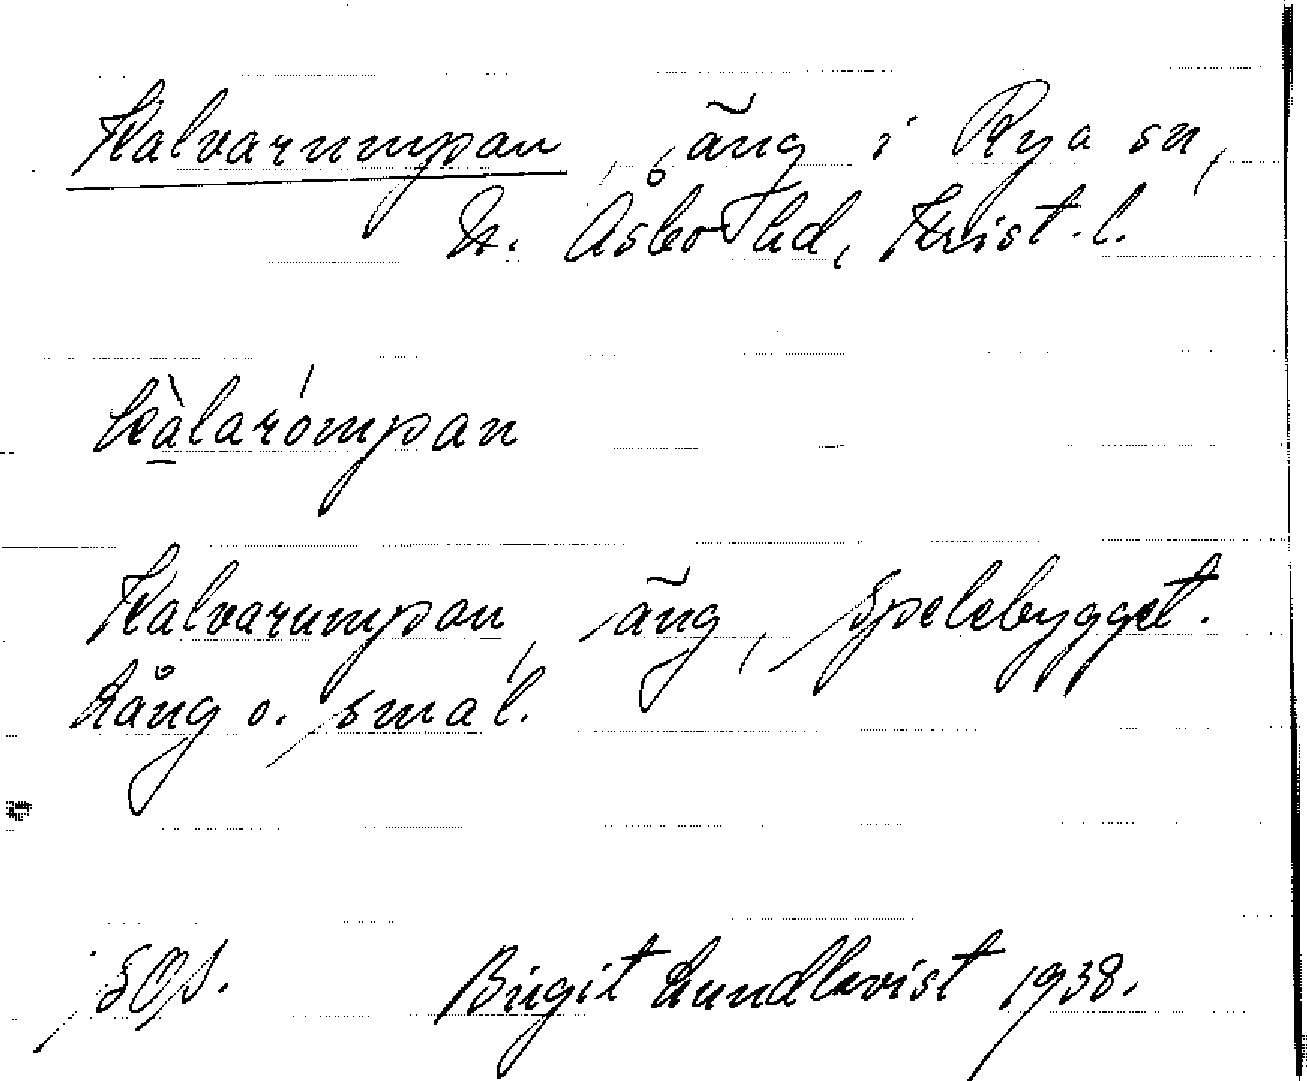 Kalvarumpan, äng i Rya sn,
N. Åsbo hd, Krist. l.
kàlarómpan
Kalvarumpan, äng, Spelebygget.
Lång o. smal.
Birgit Lundkvist 1938.